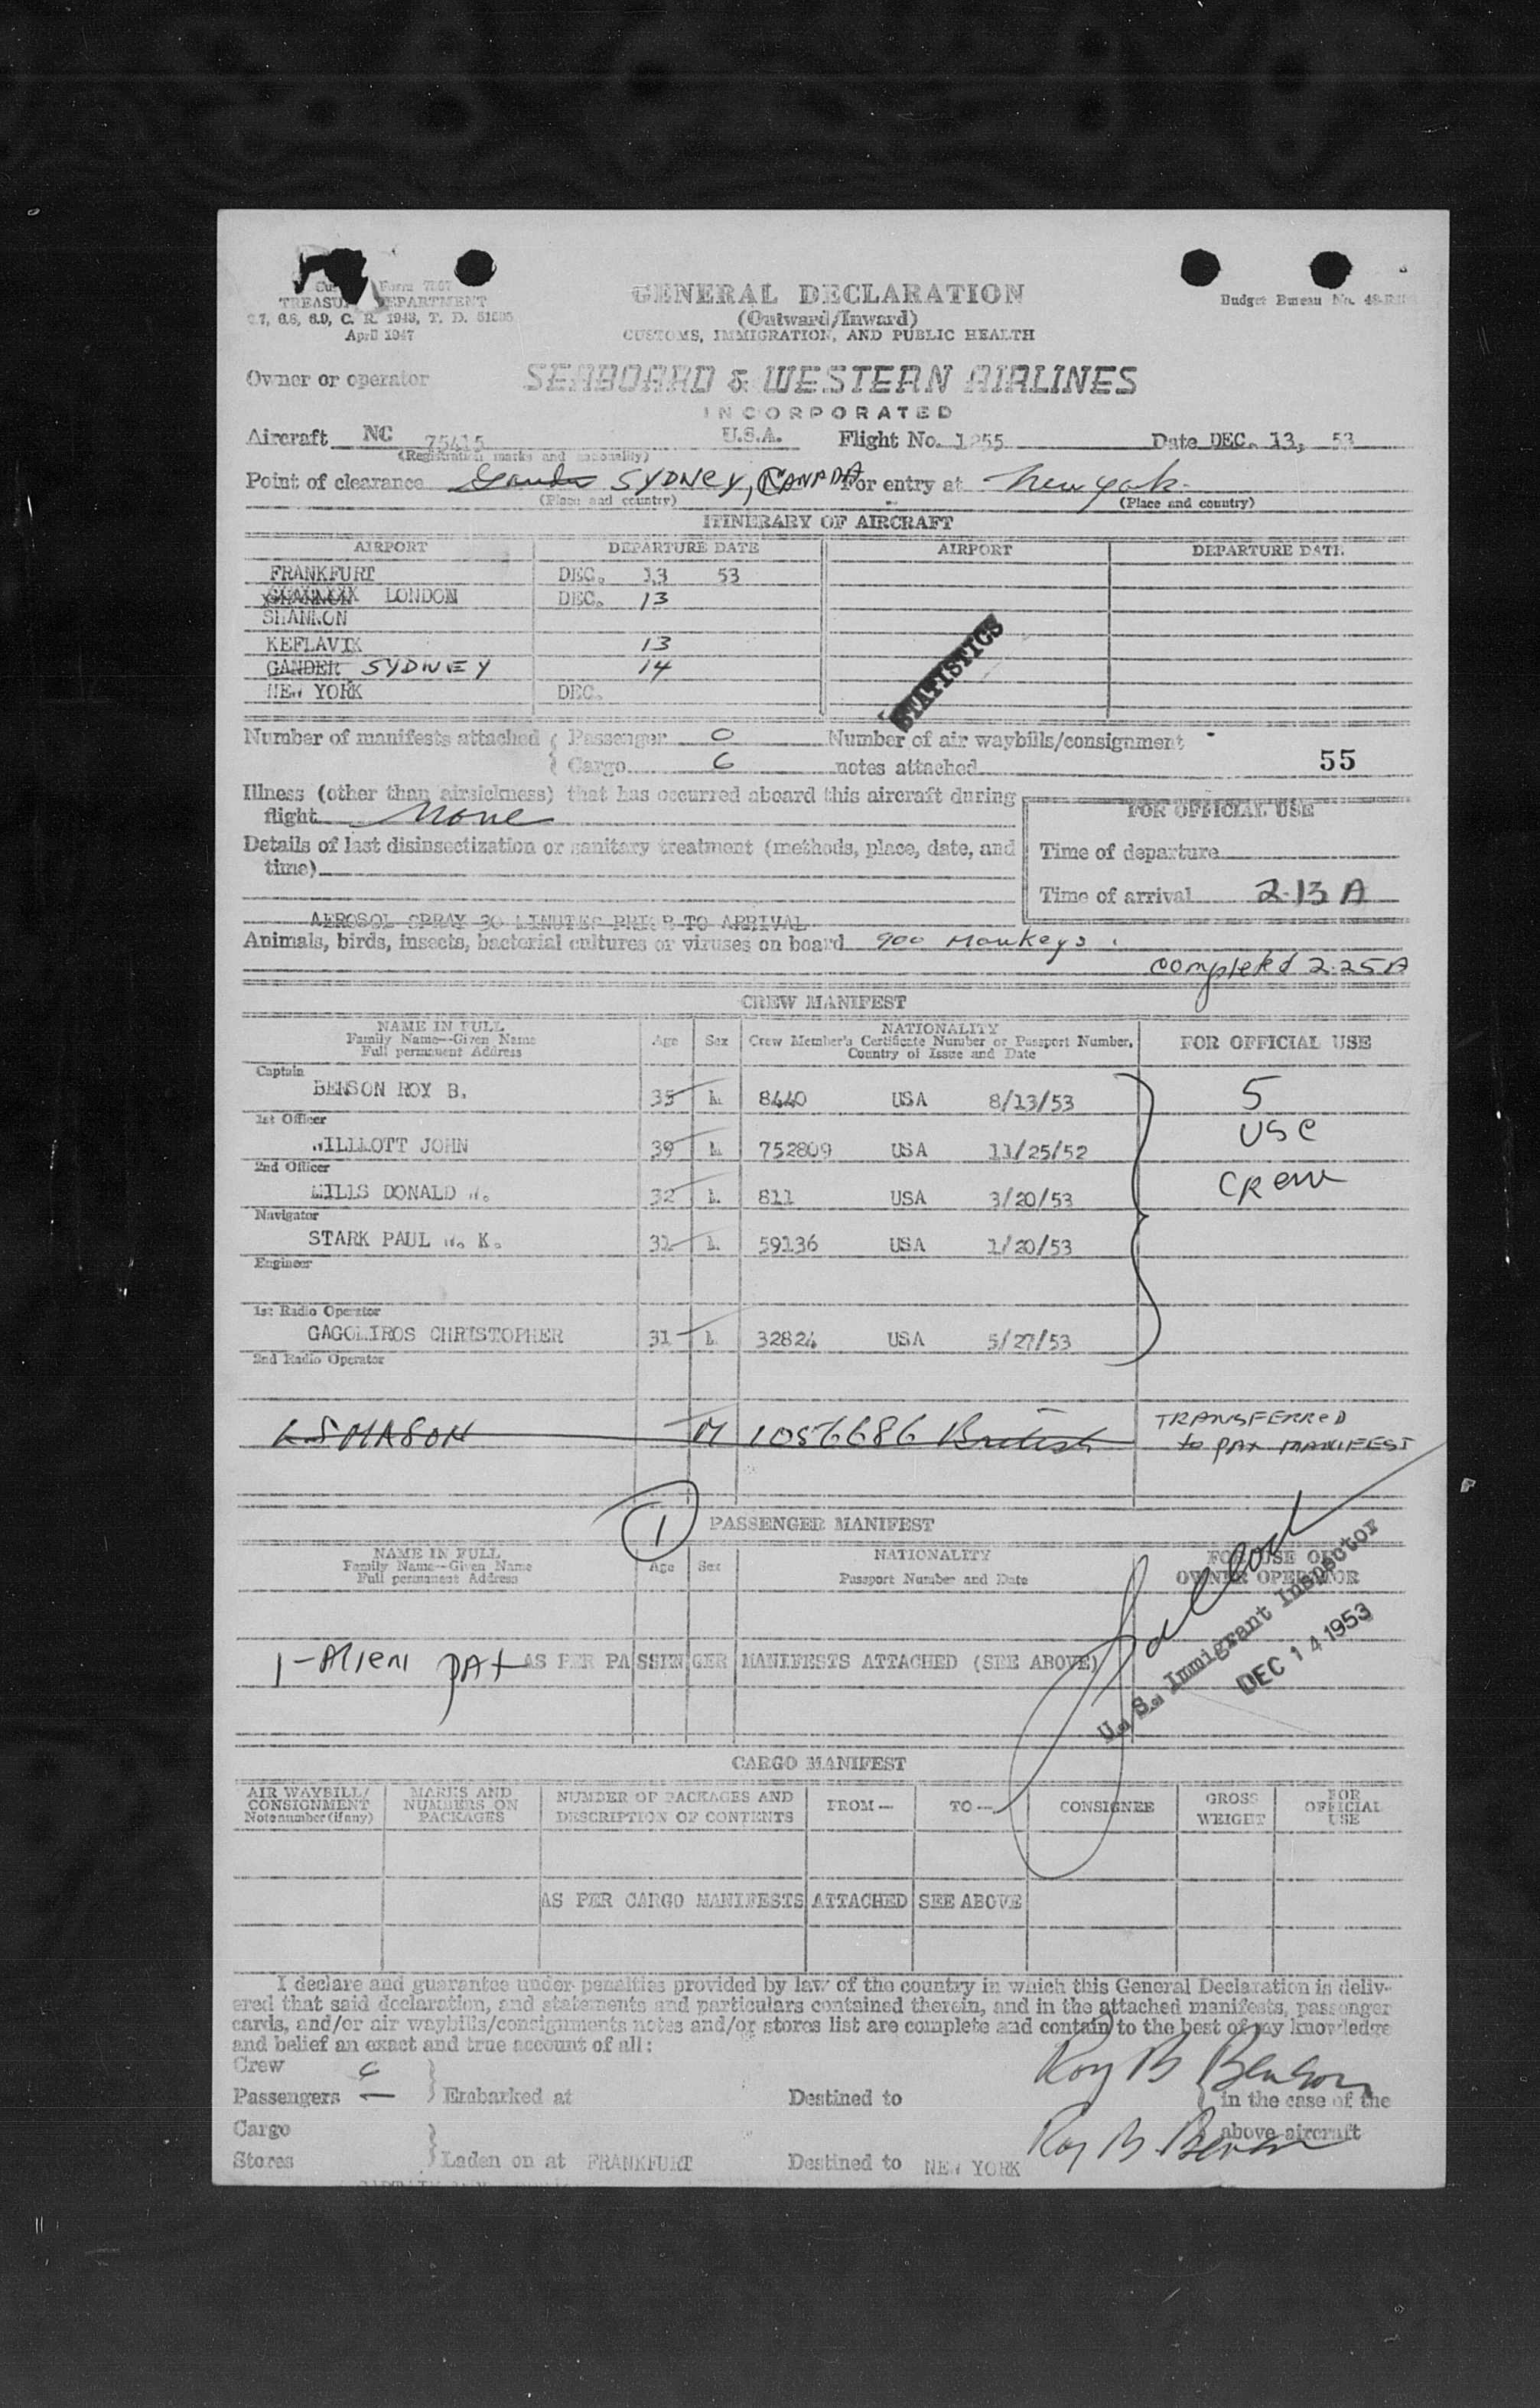 Form 7507
TREASURY DEPARTMENT
6.7, 6.8, 6.9, C. R. 1943, T. D. 51505
April 1947
GENERAL DECLARATION
(Outward/Inward)
CUSTOMS, IMMIGRATION, AND PUBLIC HEALTH
Budget Bureau No.
Owner or operator SEABOARD & WESTERN AIRLINES
INCORPORATED
Aircraft NC 75415 U.S.A. Flight No. 1255 Date DEC. 13, 53
(Registration marks and nationality)
Point of clearance Gander SYDNEY, CANADA For entry at New York
(Place and country) (Place and country)
ITINERARY OF AIRCRAFT
AIRPORT DEPARTURE DATE AIRPORT DEPARTURE DATE
FRANKFURT DEC. 13 53
LONDON DEC. 13
SHANNON
KEFLAVIK 13
GANDER SYDNEY 14
NEW YORK DEC.
STATISTICS
Number of manifests attached { Passenger 0 Number of air waybills/consignment
{ Cargo 6 notes attached 55
Illness (other than airsickness) that has occurred aboard this aircraft during
flight None
FOR OFFICIAL USE
Details of last disinsectization or sanitary treatment (methods, place, date, and
time)
Time of departure
Time of arrival 2-13 A
AEROSOL SPRAY 30 MINUTES PRIOR TO ARRIVAL
Animals, birds, insects, bacterial cultures or viruses on board 900 Monkeys.
completed 2:25A
CREW MANIFEST
NAME IN FULL
Family Name--Given Name
Full permanent Address
Age Sex
NATIONALITY
Crew Member's Certificate Number or Passport Number,
Country of Issue and Date
FOR OFFICIAL USE
Captain
BENSON ROY B. 35 M. 8440 USA 8/13/53
5
1st Officer
WILLLOTT JOHN 39 M 752809 USA 11/25/52
USC
2nd Officer
MILLS DONALD W. 32 M. 811 USA 3/20/53
Crew
Navigator
STARK PAUL W. K. 31 M. 59136 USA 1/20/53
Engineer
1st Radio Operator
CHRISTOPHER 31 M. 32824 USA 5/27/53
2nd Radio Operator
MASON M 1056686 British
TRANSFERRED
to PAX MANIFEST
1
PASSENGER MANIFEST
NAME IN FULL
Family Name--Given Name
Full permanent Address
Age Sex
NATIONALITY
Passport Number and Date
FOR USE OF
OWNER OPERATOR
1-Alien pax AS PER PASSENGER MANIFESTS ATTACHED (SEE ABOVE)
U. S. Immigrant Inspector
DEC 14 1953
CARGO MANIFEST
AIR WAYBILL/
CONSIGNMENT
Note number (if any)
MARKS AND
NUMBERS ON
PACKAGES
NUMBER OF PACKAGES AND
DESCRIPTION OF CONTENTS
FROM—
TO—
CONSIGNEE
GROSS
WEIGHT
FOR
OFFICIAL
USE
AS PER CARGO MANIFESTS ATTACHED SEE ABOVE
I declare and guarantee under penalties provided by law of the country in which this General Declaration is deliv-
ered that said declaration, and statements and particulars contained therein, and in the attached manifests, passenger
cards, and/or air waybills/consignments notes and/or stores list are complete and contain to the best of my knowledge
and belief an exact and true account of all:
Crew 6
Roy B Benson
Passengers } Embarked at Destined to } in the case of the
Cargo above aircraft
Roy B. Benson
Stores } Laden on at FRANKFURT Destined to NEW YORK